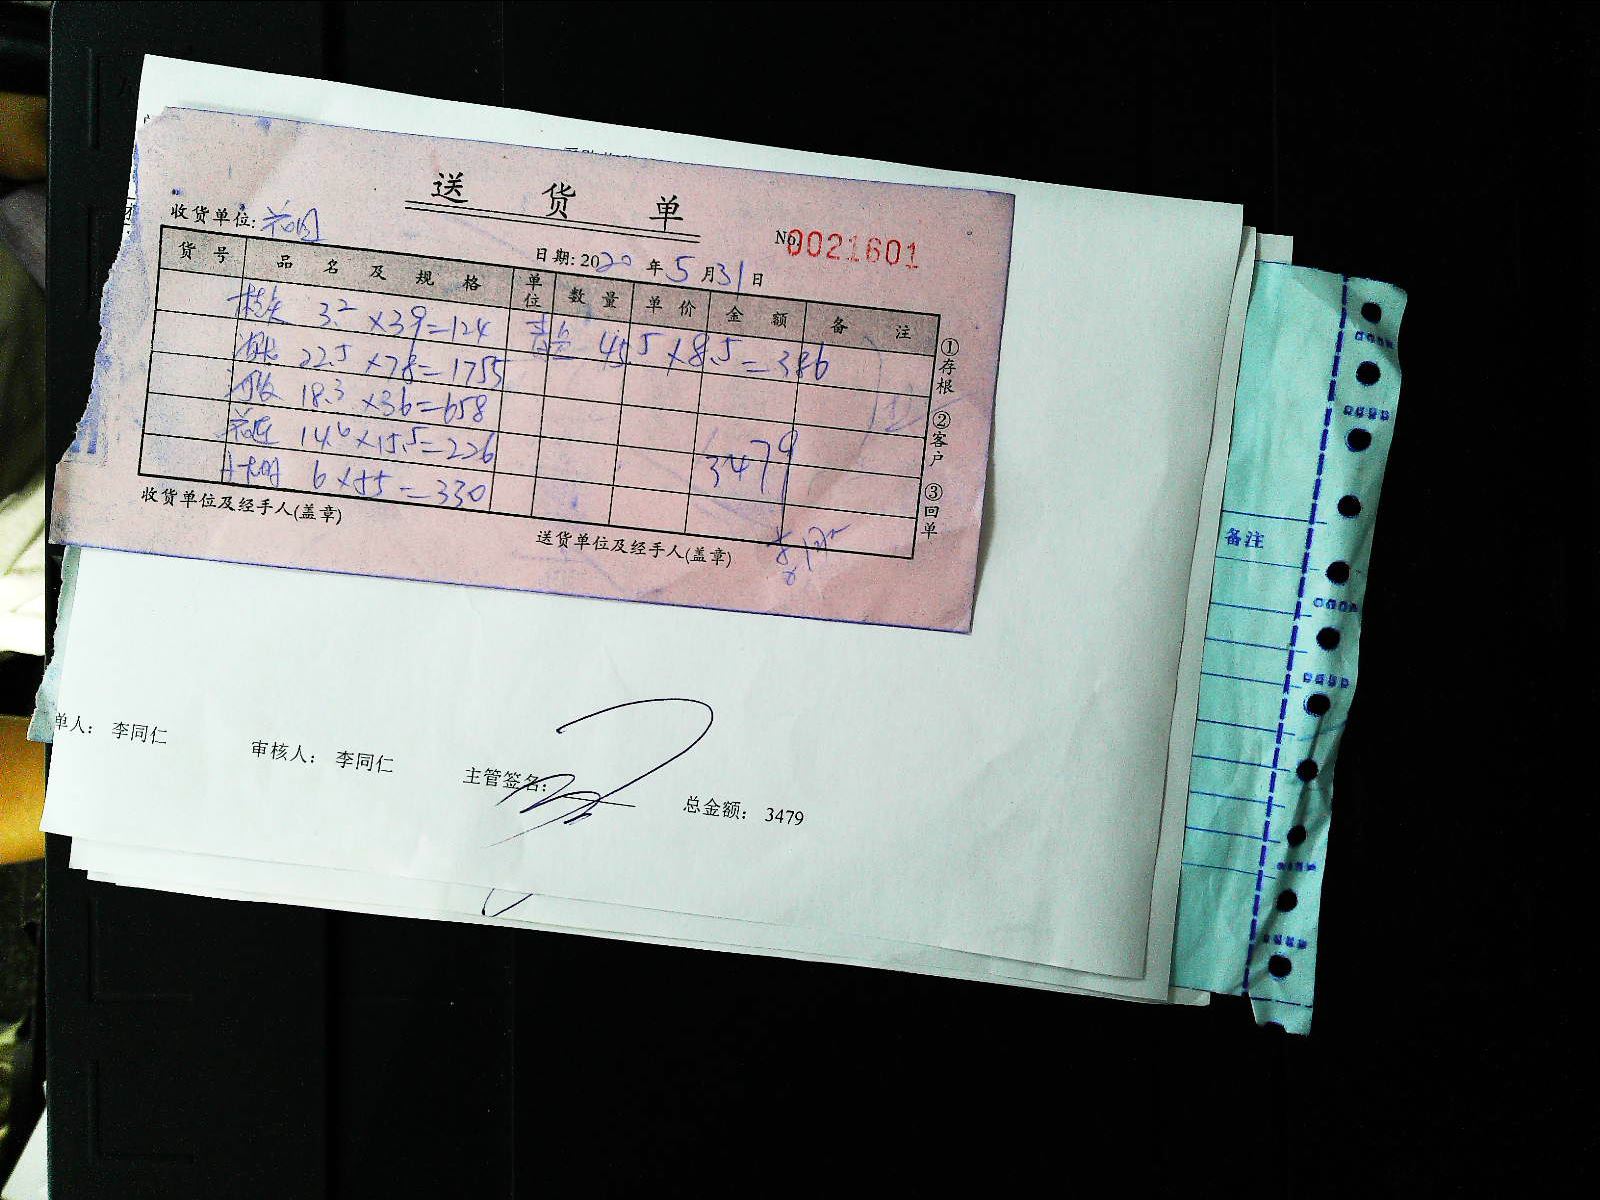 送 货 单
收货单位:
No. 0021601
日期: 2020 年 5 月 31 日
货 号 品 名 及 规 格 单位 数 量 单 价 金 额 备 注
3.2 ×39=124
45.5 ×8.5=386
22.5 ×78=1755
18.3 ×36=658
14.6 ×15.5=226
6 ×55=330
3479
①存根 ②客户 ③回单
收货单位及经手人(盖章)
送货单位及经手人(盖章)
备注
单人: 李同仁 审核人: 李同仁 主管签名: 总金额: 3479